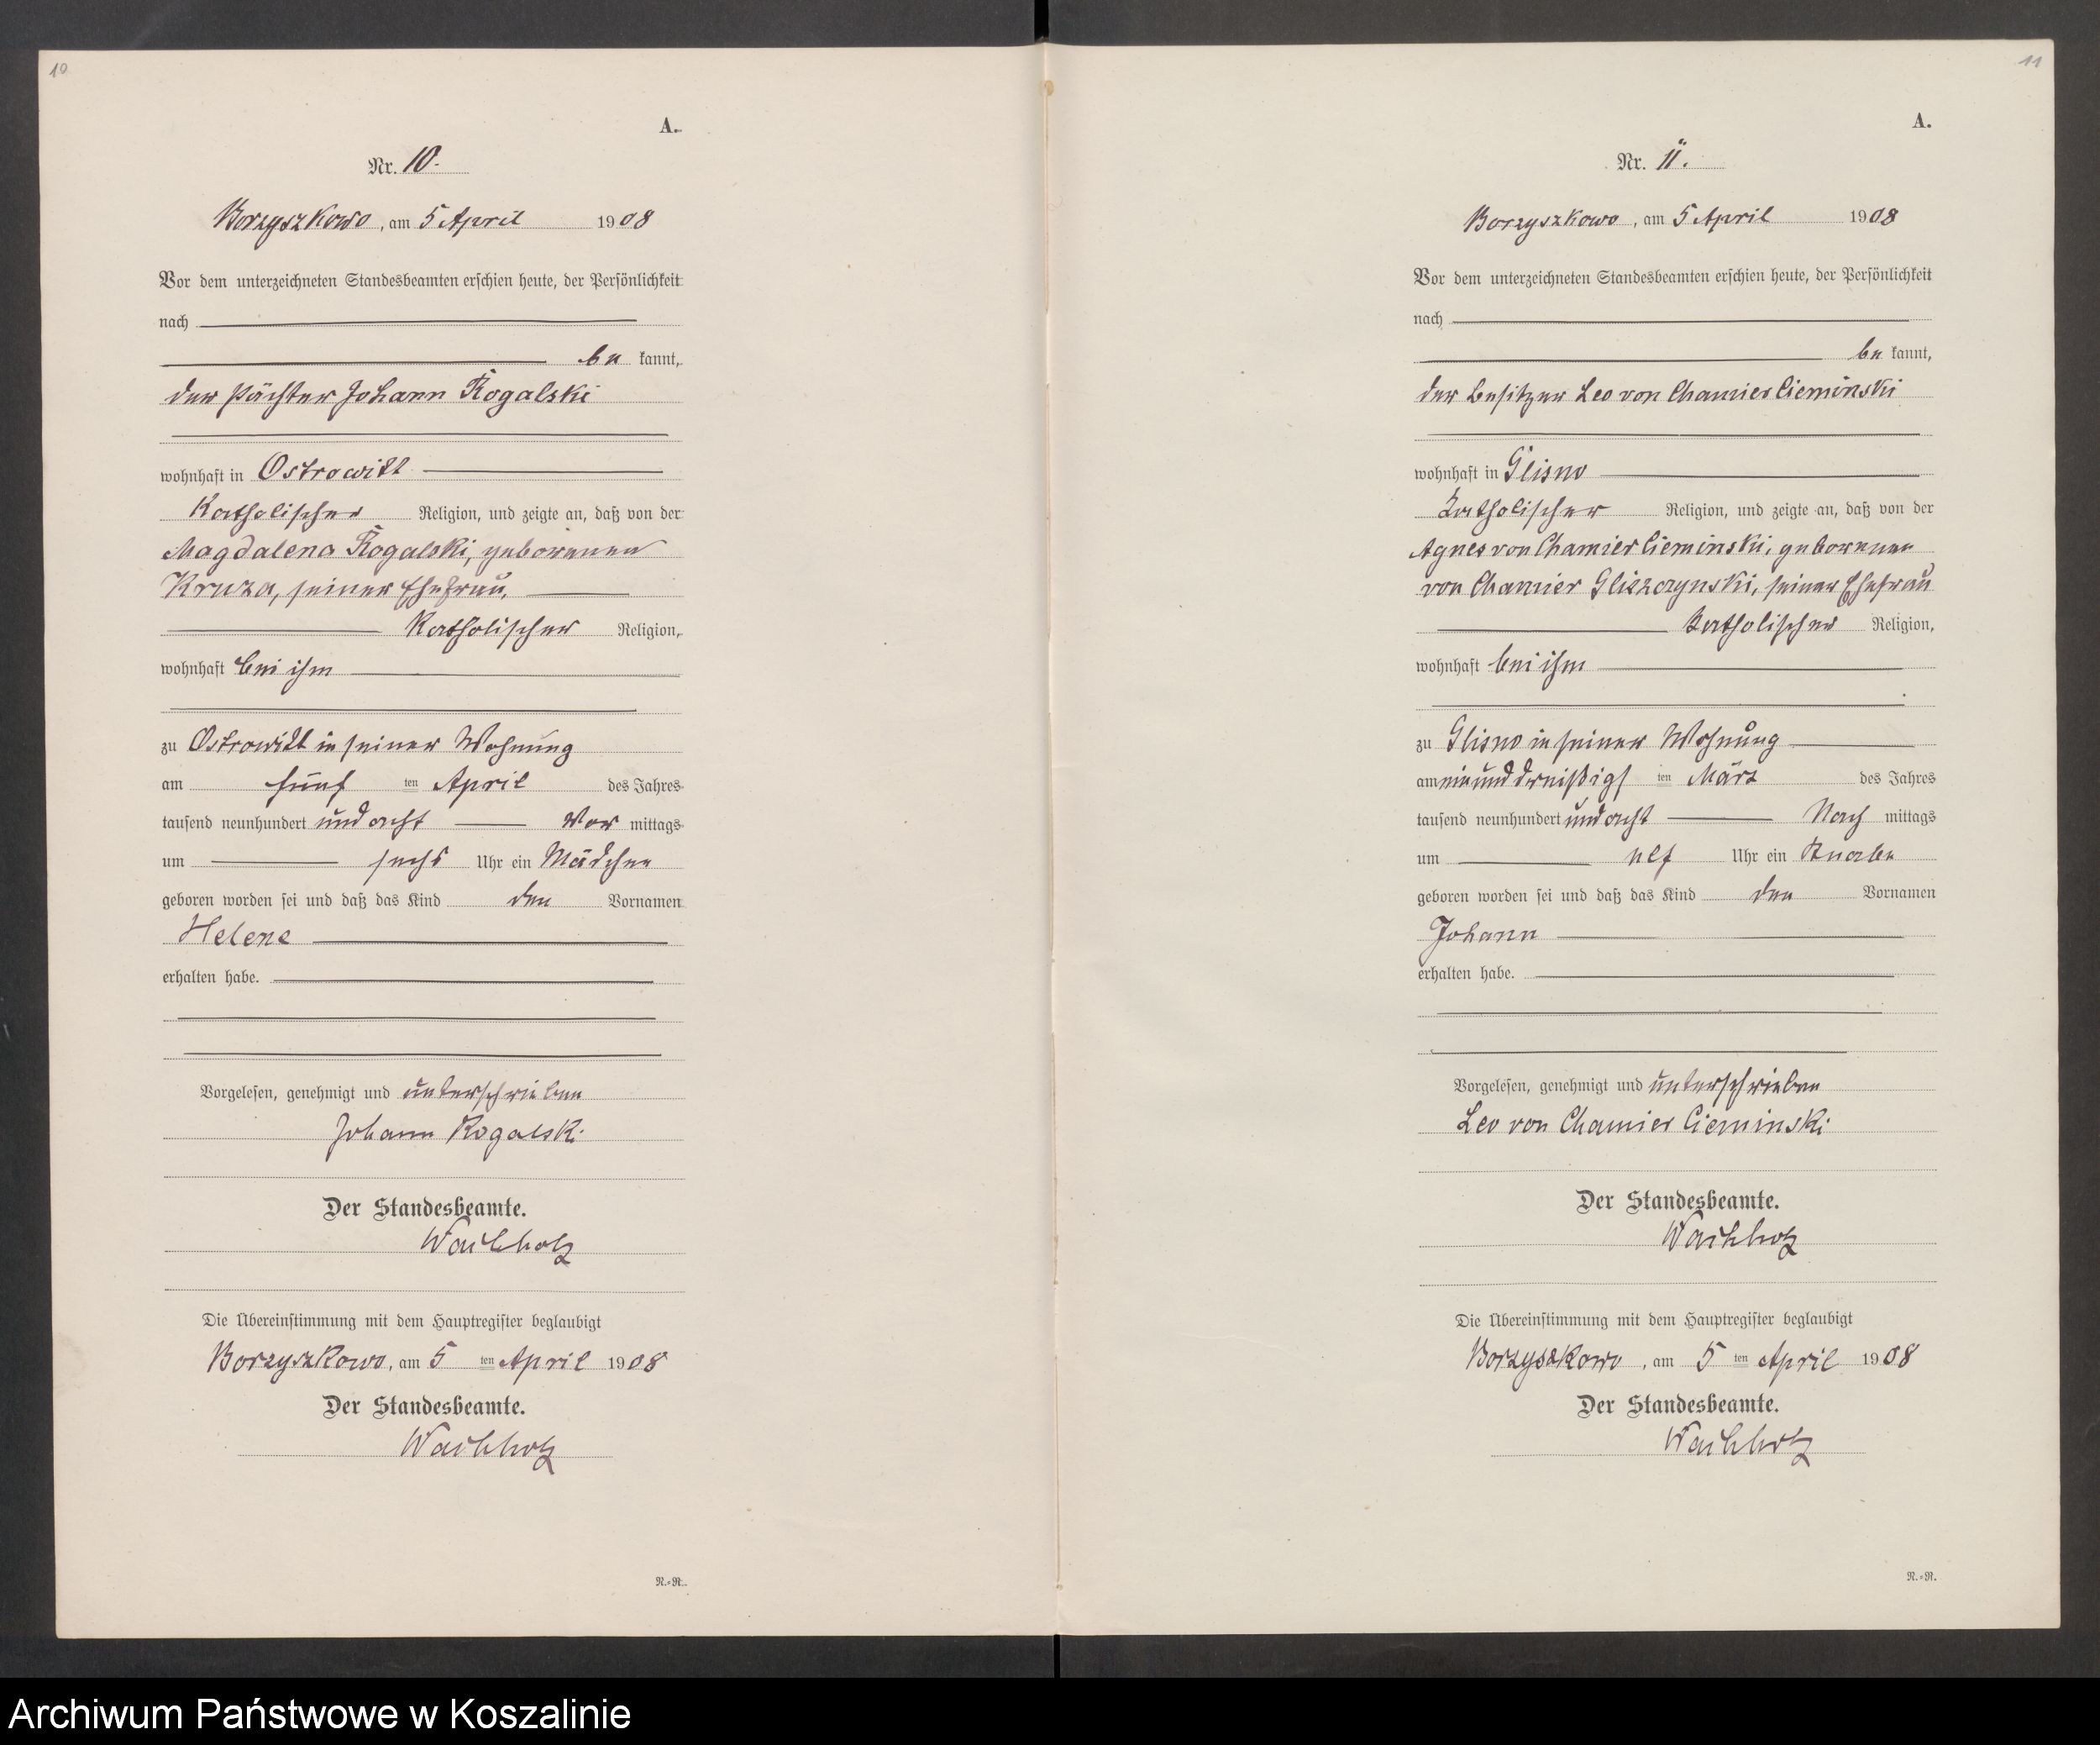 10
A.
Nr. 10.
Borzyszkowo, am 5 April 1908
Vor dem unterzeichneten Standesbeamten erschien heute, der Persönlichkeit
nach
be kannt,
der Pächter Johann Rogalski
wohnhaft in Ostrowitt
katholischer Religion, und zeigte an, daß von der
Magdalena Rogalski, geborenen
Kruza, seiner Ehefrau,
katholischer Religion,
wohnhaft bei ihm
zu Ostrowitt in seiner Wohnung
am fünf ten April des Jahres
tausend neunhundert und acht Vor mittags
um sechs Uhr ein Mädchen
geboren worden sei und daß das Kind den Vornamen
Helene
erhalten habe.
Vorgelesen, genehmigt und unterschrieben
Johann Rogalski
Der Standesbeamte.
Wachholz
Die Übereinstimmung mit dem Hauptregister beglaubigt
Borzyszkowo, am 5 ten April 1908
Der Standesbeamte.
Wachholz
N.=R.
11
A.
Nr. 11.
Borzyszkowo, am 5 April 1908
Vor dem unterzeichneten Standesbeamten erschien heute, der Persönlichkeit
nach
be kannt,
der Besitzer Leo von Chamier Cieminski
wohnhaft in Glisno
katholischer Religion, und zeigte an, daß von der
Agnes von Chamier Cieminski, geborenen
von Chamier Gliszczynski, seiner Ehefrau
katholischer Religion,
wohnhaft bei ihm
zu Glisno in seiner Wohnung
am einunddreißigs ten März des Jahres
tausend neunhundert und acht Nach mittags
um elf Uhr ein Knabe
geboren worden sei und daß das Kind den Vornamen
Johann
erhalten habe.
Vorgelesen, genehmigt und unterschrieben
Leo von Chamier Cieminski
Der Standesbeamte.
Wachholz
Die Übereinstimmung mit dem Hauptregister beglaubigt
Borzyszkowo, am 5 ten April 1908
Der Standesbeamte.
Wachholz
N.=R.
Archiwum Państwowe w Koszalinie